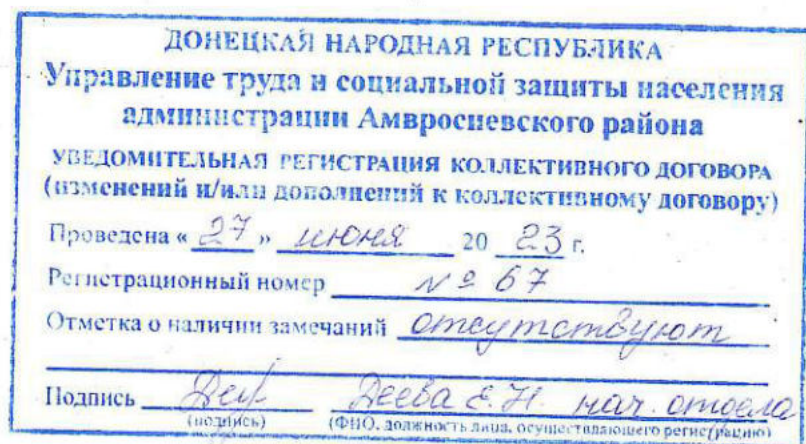 ДОНЕЦКАЯ НАРОДНАЯ РЕСПУБЛИКА
Управление труда и социальной защиты населения
администрации Амвросиевского района
УВЕДОМИТЕЛЬНАЯ РЕГИСТРАЦИЯ КОЛЛЕКТИВНОГО ДОГОВОРА
(изменений и/или дополнений к коллективному договору)
Проведена « 27 » июня 20 23 г.
Регистрационный номер № 67
Отметка о наличии замечаний отсутствуют
Подпись Деева Е.Н. нач. отдела
(подпись) (ФИО, должность лица, осуществляющего регистрацию)